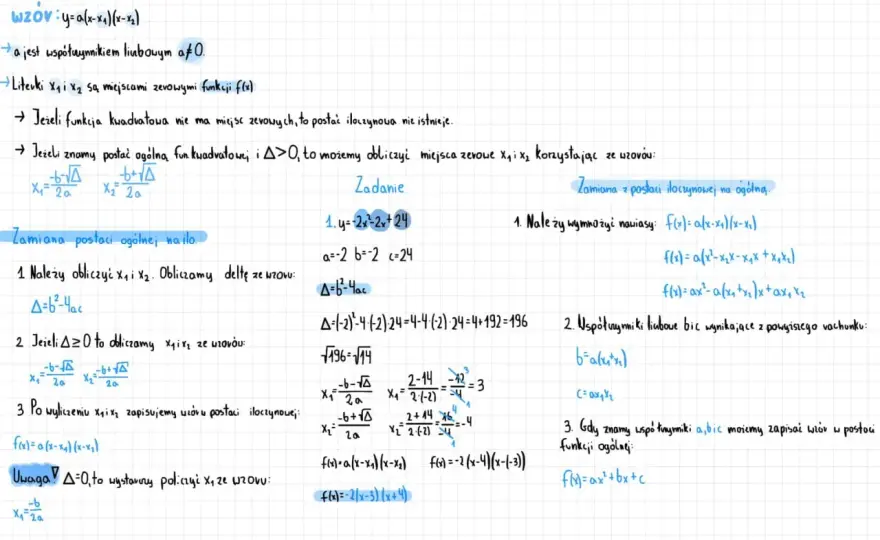 WZÓR: y=a(x-x₁)(x-x₂)
→ a jest współczynnikiem liczbowym a≠0.
→ Literki x₁ i x₂ są miejscami zerowymi funkcji f(x)
→ Jeżeli funkcja kwadratowa nie ma miejsc zerowych, to postać iloczynowa nie istnieje.
→ Jeżeli znamy postać ogólną fun kwadratowej i Δ>0, to możemy obliczyć miejsca zerowe x₁ i x₂ korzystając ze wzorów:
x₁=(-b-√Δ)/2a x₂=(-b+√Δ)/2a
Zamiana postaci ogólnej na ilo
1 Należy obliczyć x₁ i x₂. Obliczamy deltę ze wzoru:
Δ=b²-4ac
2 Jeżeli Δ≥0 to obliczamy x₁ i x₂ ze wzorów:
x₁=(-b-√Δ)/2a x₂=(-b+√Δ)/2a
3 Po wyliczeniu x₁ i x₂ zapisujemy wzór w postaci iloczynowej:
f(x)=a(x-x₁)(x-x₂)
Uwaga! Δ=0, to wystarczy policzyć x₁ ze wzoru:
x₁=-b/2a
Zadanie
1. y=-2x²-2x+24
a=-2 b=-2 c=24
Δ=b²-4ac
Δ=(-2)²-4·(-2)·24=4-4·(-2)·24=4+192=196
√196=√14
x₁=(-b-√Δ)/2a x₁=(2-14)/(2·(-2))=-12/-4=3
x₂=(-b+√Δ)/2a x₂=(2+14)/(2·(-2))=16/-4=-4
f(x)=a(x-x₁)(x-x₂) f(x)=-2(x-4)(x-(-3))
f(x)=-2(x-3)(x+4)
Zamiana z postaci iloczynowej na ogólną
1. Należy wymnożyć nawiasy: f(x)=a(x-x₁)(x-x₂)
f(x)=a(x²-x₂x-x₁x+x₁x₂)
f(x)=ax²-a(x₁+x₂)x+ax₁x₂
2. Współczynniki liczbowe b i c wynikające z powyższego rachunku:
b=a(x₁+x₂)
c=ax₁x₂
3. Gdy znamy współczynniki a, b i c możemy zapisać wzór w postaci
funkcji ogólnej:
f(x)=ax²+bx+c